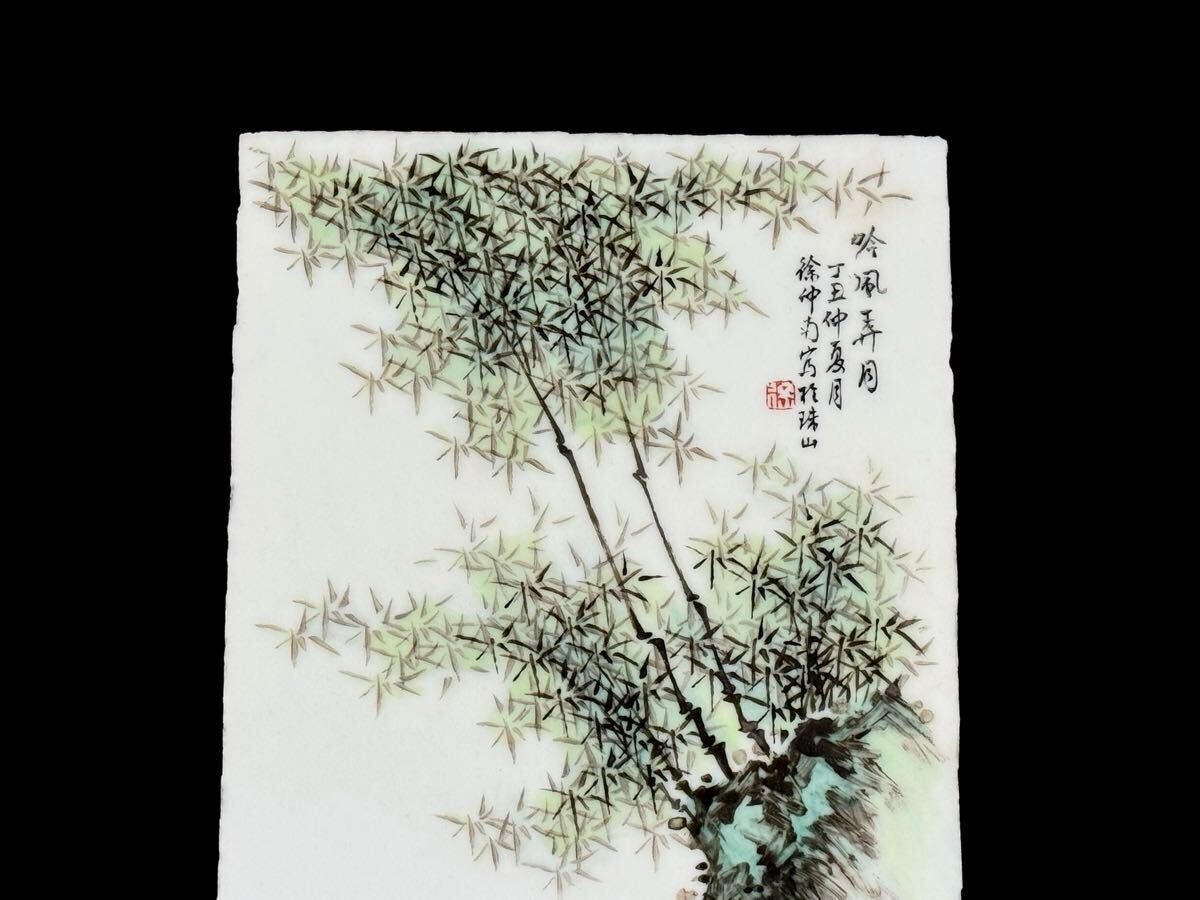 吟風弄月
丁丑仲夏月
徐仲南寫於珠山